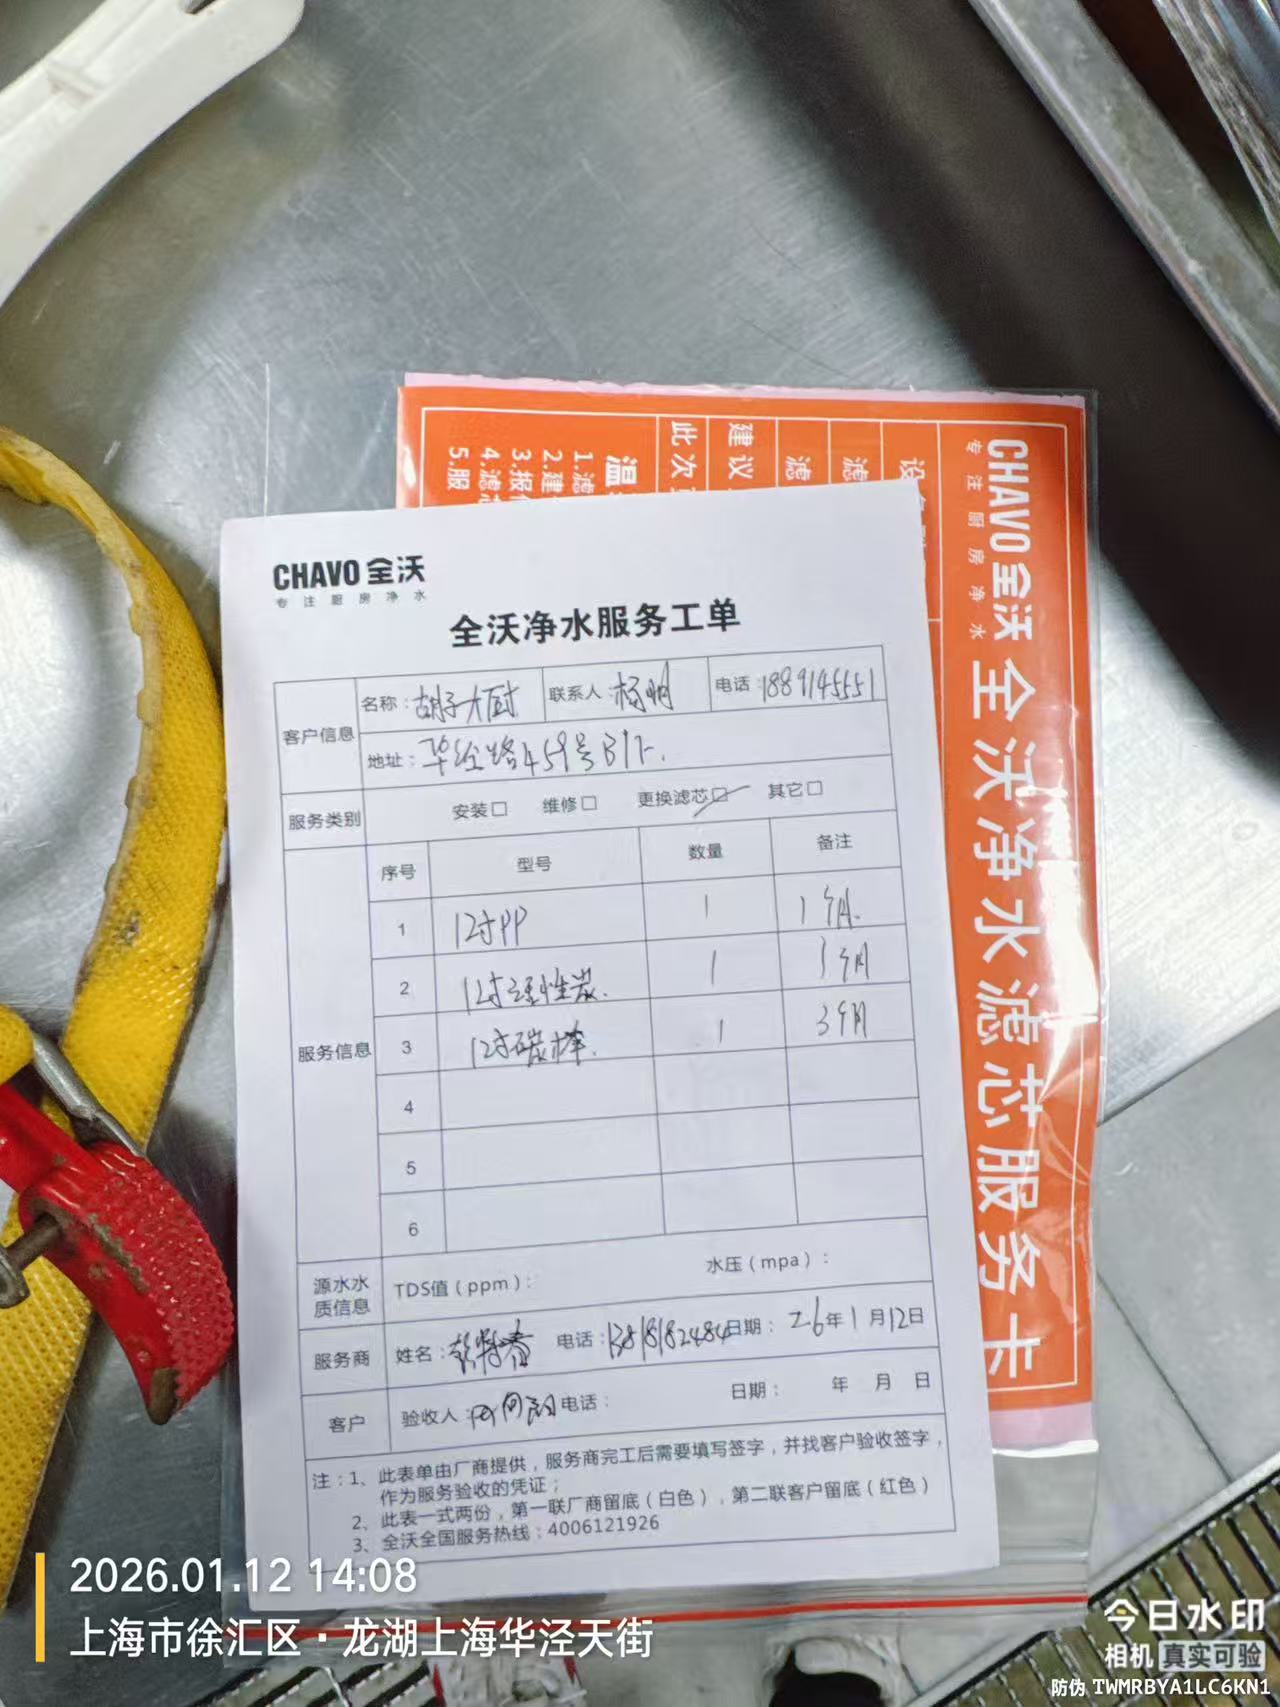 CHAVO全沃
专注厨房净水
全沃净水滤芯服务卡
设
滤
滤
建议
此次
温
1.滤
2.建
3.报
4.滤芯
5.服
CHAVO全沃
专注厨房净水
全沃净水服务工单
客户信息 名称：胡子大厨 联系人：杨明 电话：1889145551
地址：华泾路459号B1F.
服务类别 安装□ 维修□ 更换滤芯□ 其它□
服务信息 序号 型号 数量 备注
1 12寸PP 1 1个月.
2 12寸活性炭. 1 1个月
3 12寸碳棒. 1 3个月
4
5
6
源水水质信息 TDS值（ppm）： 水压（mpa）：
服务商 姓名： 电话：13818182484 日期：26年1月12日
客户 验收人： 电话： 日期： 年 月 日
注：1、此表单由厂商提供，服务商完工后需要填写签字，并找客户验收签字，
作为服务验收的凭证；
2、此表一式两份，第一联厂商留底（白色），第二联客户留底（红色）
3、全沃全国服务热线：4006121926
2026.01.12 14:08
上海市徐汇区·龙湖上海华泾天街
今日水印
相机 真实可验
防伪 TWMRBYA1LC6KN1